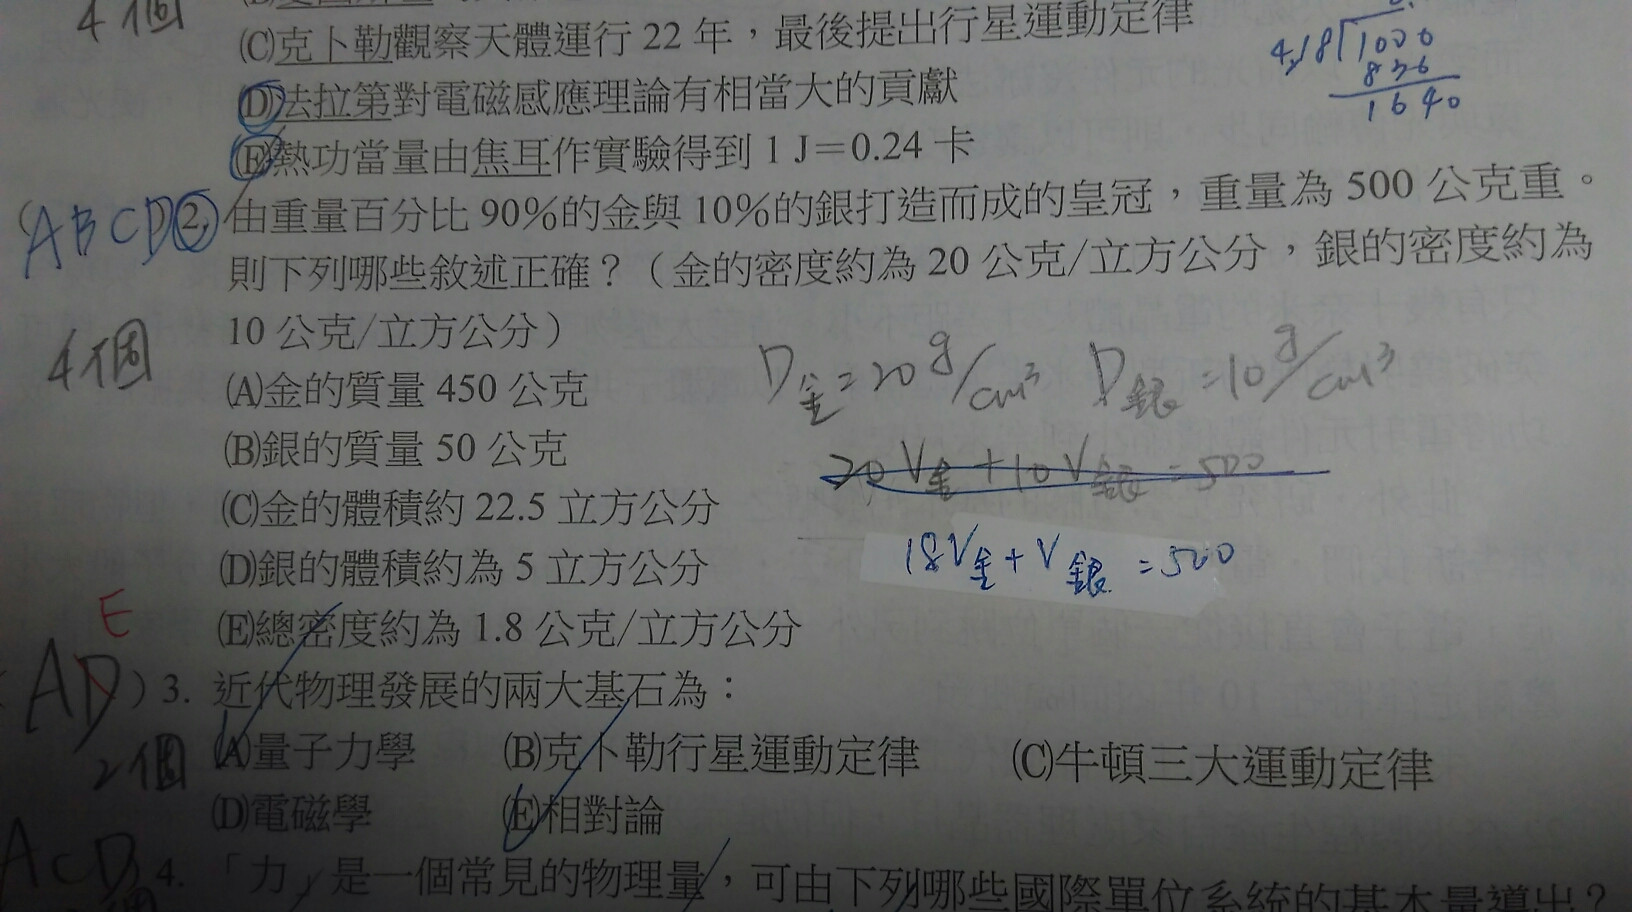 4個
(C)克卜勒觀察天體運行 22 年，最後提出行星運動定律
(D)法拉第對電磁感應理論有相當大的貢獻
(E)熱功當量由焦耳作實驗得到 1 J＝0.24 卡
4.18 1000
836
1640
(ABCD)2. 由重量百分比 90%的金與 10%的銀打造而成的皇冠，重量為 500 公克重。
則下列哪些敘述正確？（金的密度約為 20 公克/立方公分，銀的密度約為
10 公克/立方公分）
4個
(A)金的質量 450 公克
D金=20 g/cm³ D銀=10 g/cm³
(B)銀的質量 50 公克
20V金+10V銀=500
(C)金的體積約 22.5 立方公分
18V金+V銀=500
(D)銀的體積約為 5 立方公分
(E)總密度約為 1.8 公克/立方公分
E
(AD)3. 近代物理發展的兩大基石為：
2個
(A)量子力學 (B)克卜勒行星運動定律 (C)牛頓三大運動定律
(D)電磁學 (E)相對論
ACD 4. 「力」是一個常見的物理量，可由下列哪些國際單位系統的基本量導出？